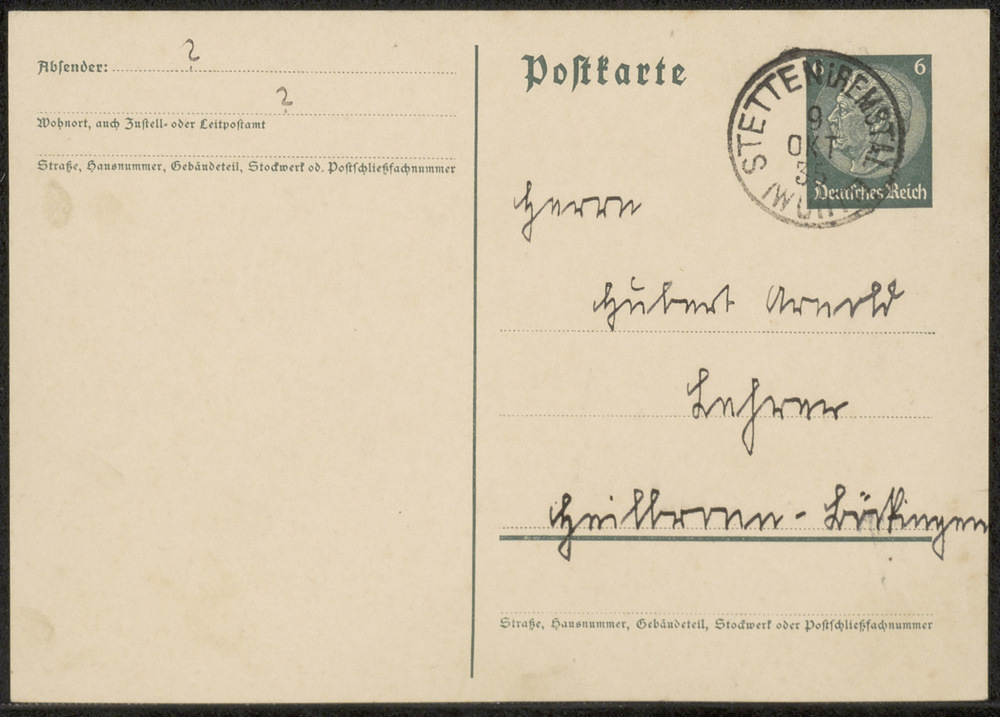 Absender: ?
?
Wohnort, auch Zustell- oder Leitpostamt
Straße, Hausnummer, Gebäudeteil, Stockwerk od. Postschließfachnummer
Postkarte
6
Deutsches Reich
STETTEN i REMSTAL
9
OKT
Herrn
Hubert Arnold
Lehrer
Heilbronn - Böckingen
Straße, Hausnummer, Gebäudeteil, Stockwerk oder Postschließfachnummer